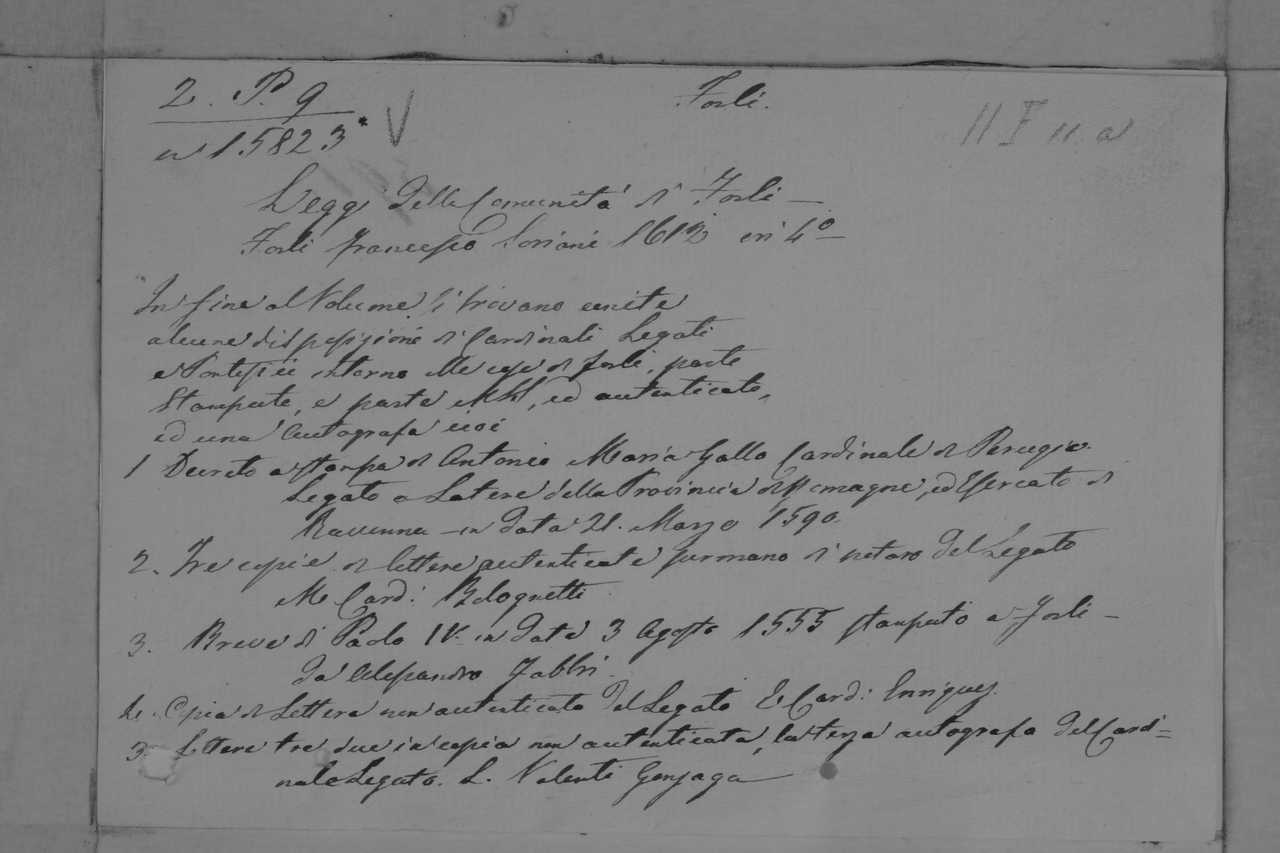 2. P. 9
n 15823
V
Forlì.
11 F 11. a
Leggi della Comunità di Forlì —
Forlì Francesco Soriani 1612 in 4o —
In fine al Volume si trovano unite
alcune disposizioni di Cardinali Legati
e Pontefici intorno alle cose di Forlì, parte
Stampate, e parte MSS, ed autenticate,
ed una autografa cioè
1 Decreto a stampa di Antonio Maria Gallo Cardinale di Perugia
Legato a Latere della Provincia di Romagna, ed Esarcato di
Ravenna — in data 21. Marzo 1590.
2. Tre copie di lettere autenticate per mano di notaro del Legato
Card: Bolognetti
3. Breve di Paolo IV. in data 3 Agosto 1555 stampato a Forlì —
da Alessandro Fabbri.
4. Copia di Lettera non autenticata del Legato E Card: Enriquez.
3. Lettere tre due in copia non autenticata, la terza autografa del Cardi=
nale Legato. L. Valenti Gonzaga —